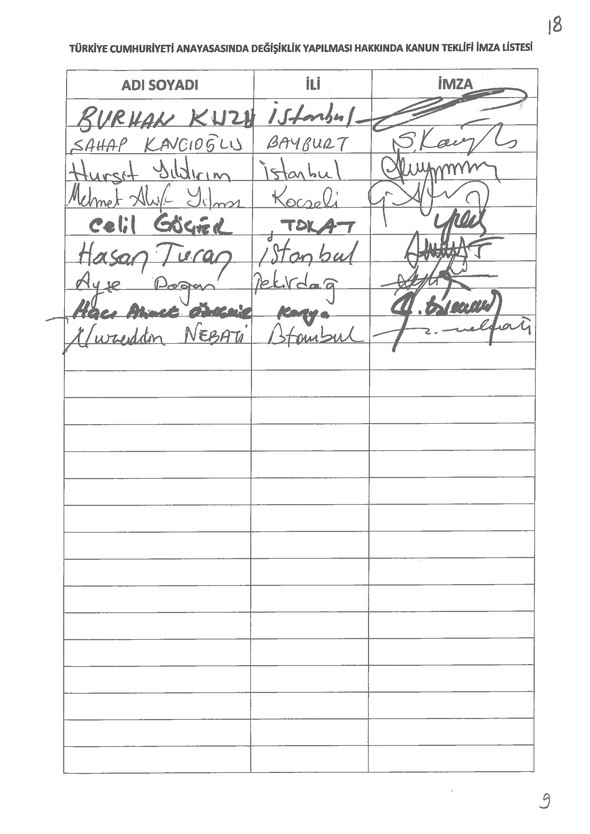 18
TÜRKİYE CUMHURİYETİ ANAYASASINDA DEĞİŞİKLİK YAPILMASI HAKKINDA KANUN TEKLİFİ İMZA LİSTESİ
ADI SOYADI İLİ İMZA
BURHAN KUZU İstanbul
SAHAP KAVCIOĞLU BAYBURT S.Kavcıoğlu
Hurşit Yıldırım İstanbul
Mehmet Akif Yılmaz Kocaeli
Celil GÖÇER TOKAT
Hasan Turan İstanbul
Ayşe Doğan Tekirdağ
Hacı Ahmet Özdemir Konya
Nureddin NEBATİ İstanbul n. nebati
9